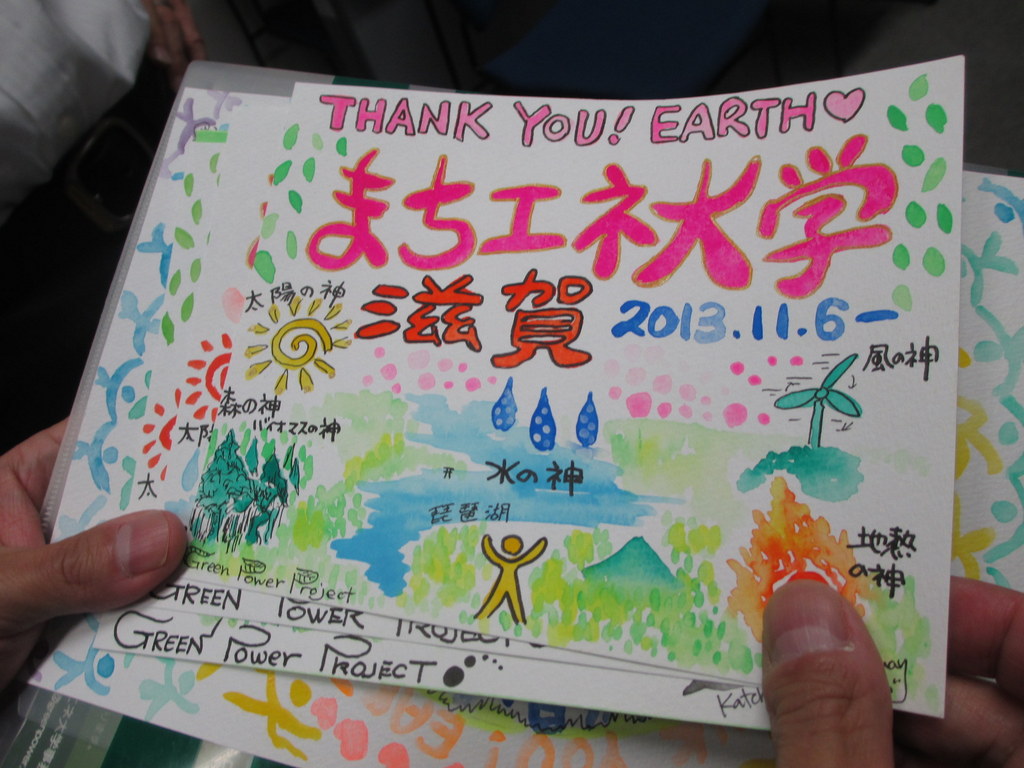 THANK YOU! EARTH
まちエネ大学
滋賀 2013.11.6ー
太陽の神
風の神
森の神
バイオマスの神
太陽
水の神
太
琵琶湖
地熱の神
Green Power Project
GREEN POWER PROJECT
GREEN Power PROJECT